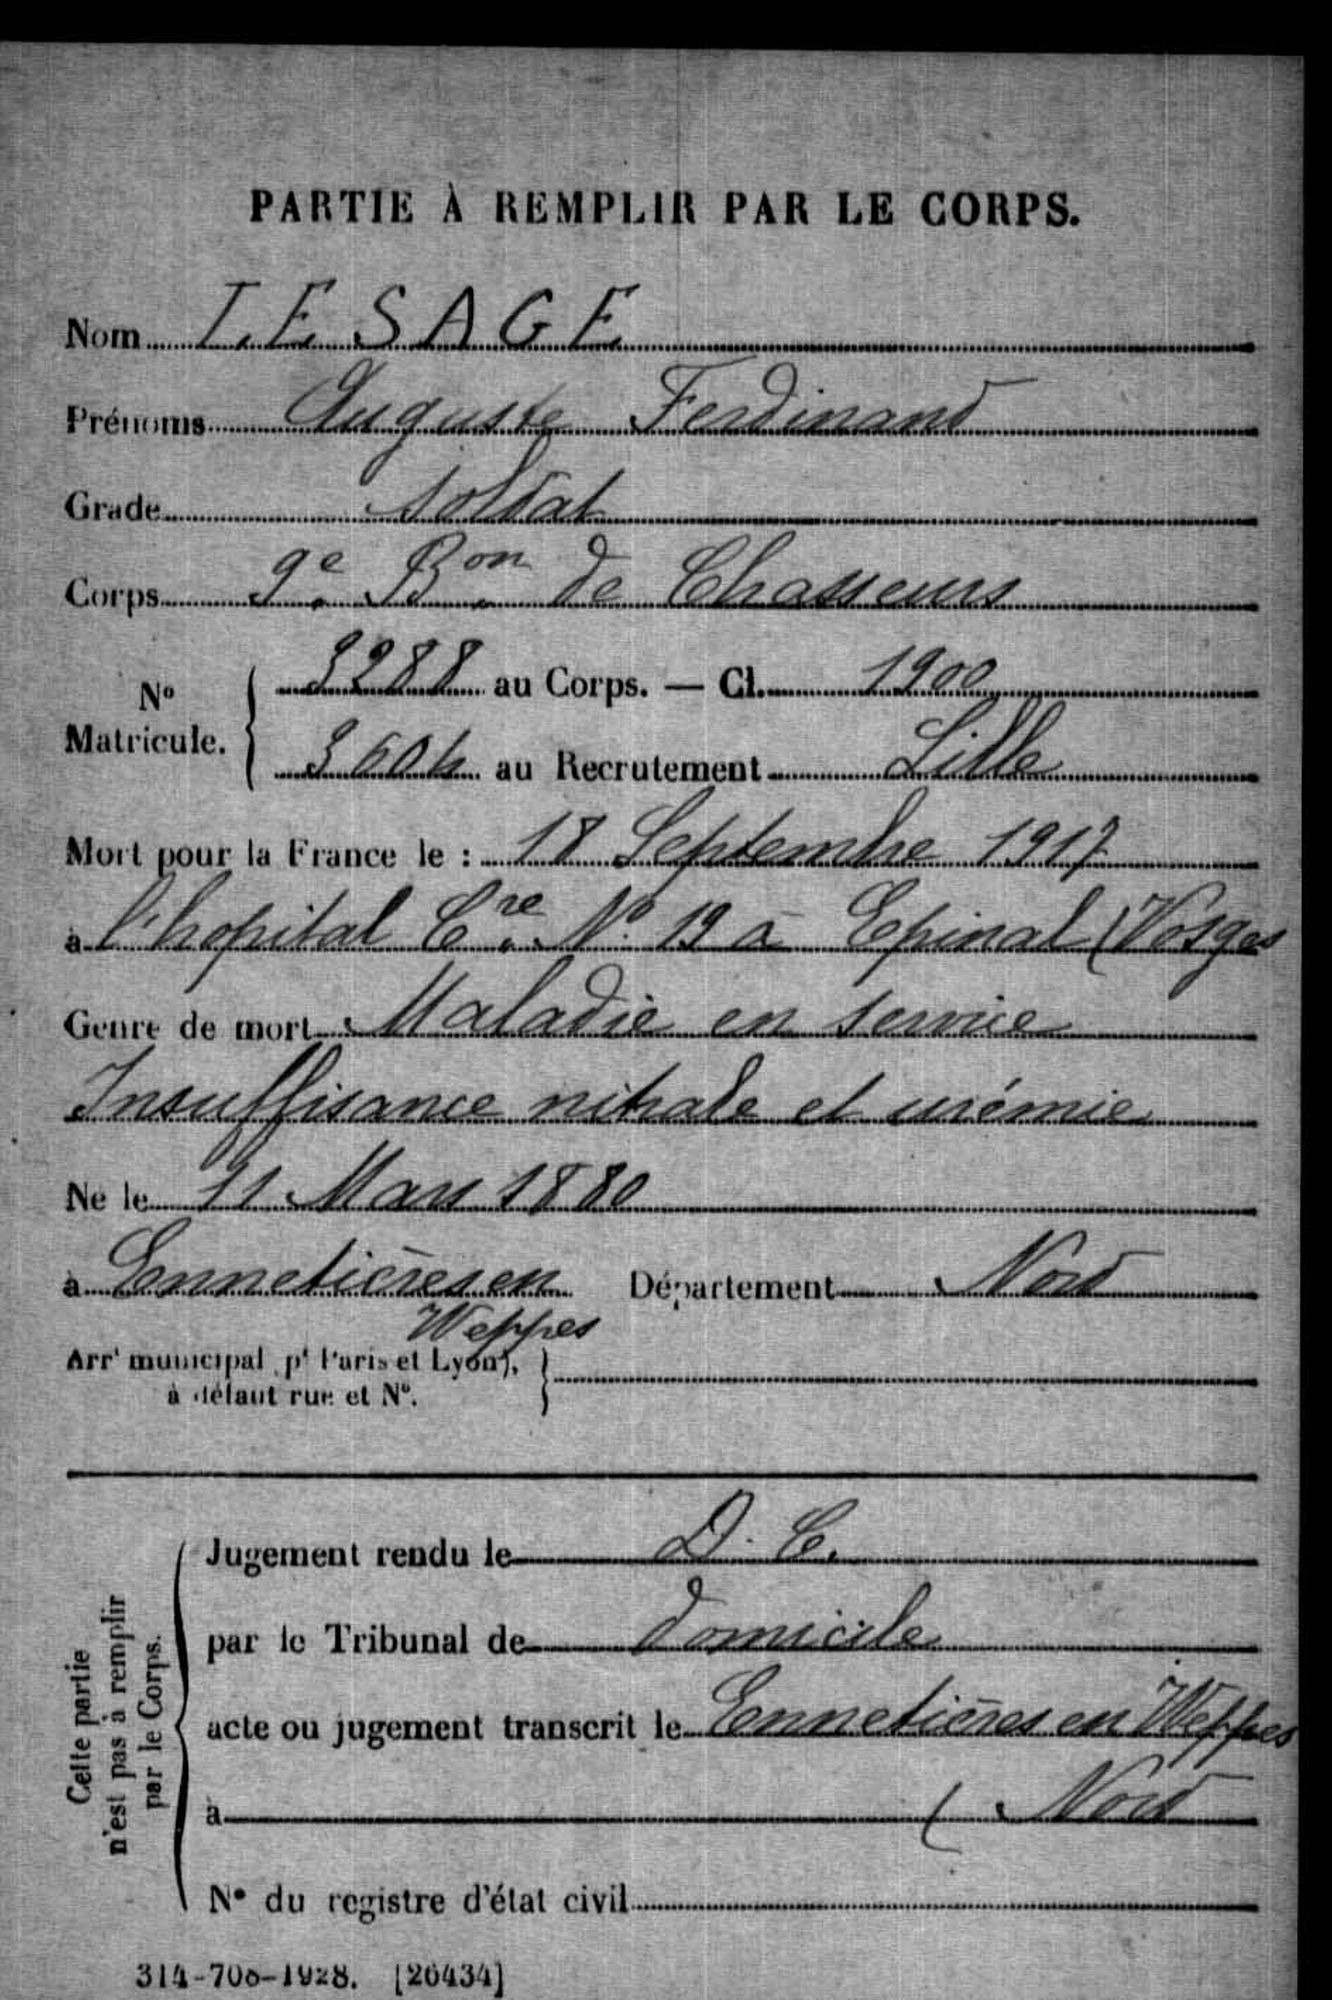 PARTIE À REMPLIR PAR LE CORPS.
Nom LESAGE
Prénoms Auguste Ferdinand
Grade Soldat
Corps 9e. Bon. de Chasseurs
No Matricule. 3288 au Corps. — Cl. 1900
3604 au Recrutement Lille
Mort pour la France le : 18 Septembre 1917
à l'hopital Cre. No. 12 à Epinal (Vosges
Genre de mort Maladie en service
Insuffisance mitrale et urémie
Né le 11 Mars 1880
à Ennetières en Département Nord
Weppes
Arrt municipal (pr Paris et Lyon),
à défaut rue et No.
Jugement rendu le D. C.
par le Tribunal de domicile
acte ou jugement transcrit le Ennetières en Weppes
à ( Nord
No du registre d'état civil
Cette partie
n'est pas à remplir
par le Corps.
314-708-1928. [26434]